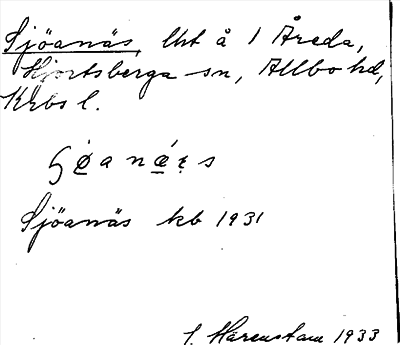 Sjöanäs, lht å 1 Åreda,
Hjortsberga sn, Allbo hd,
Krbs l.
Sjöanäs kb 1931
1933